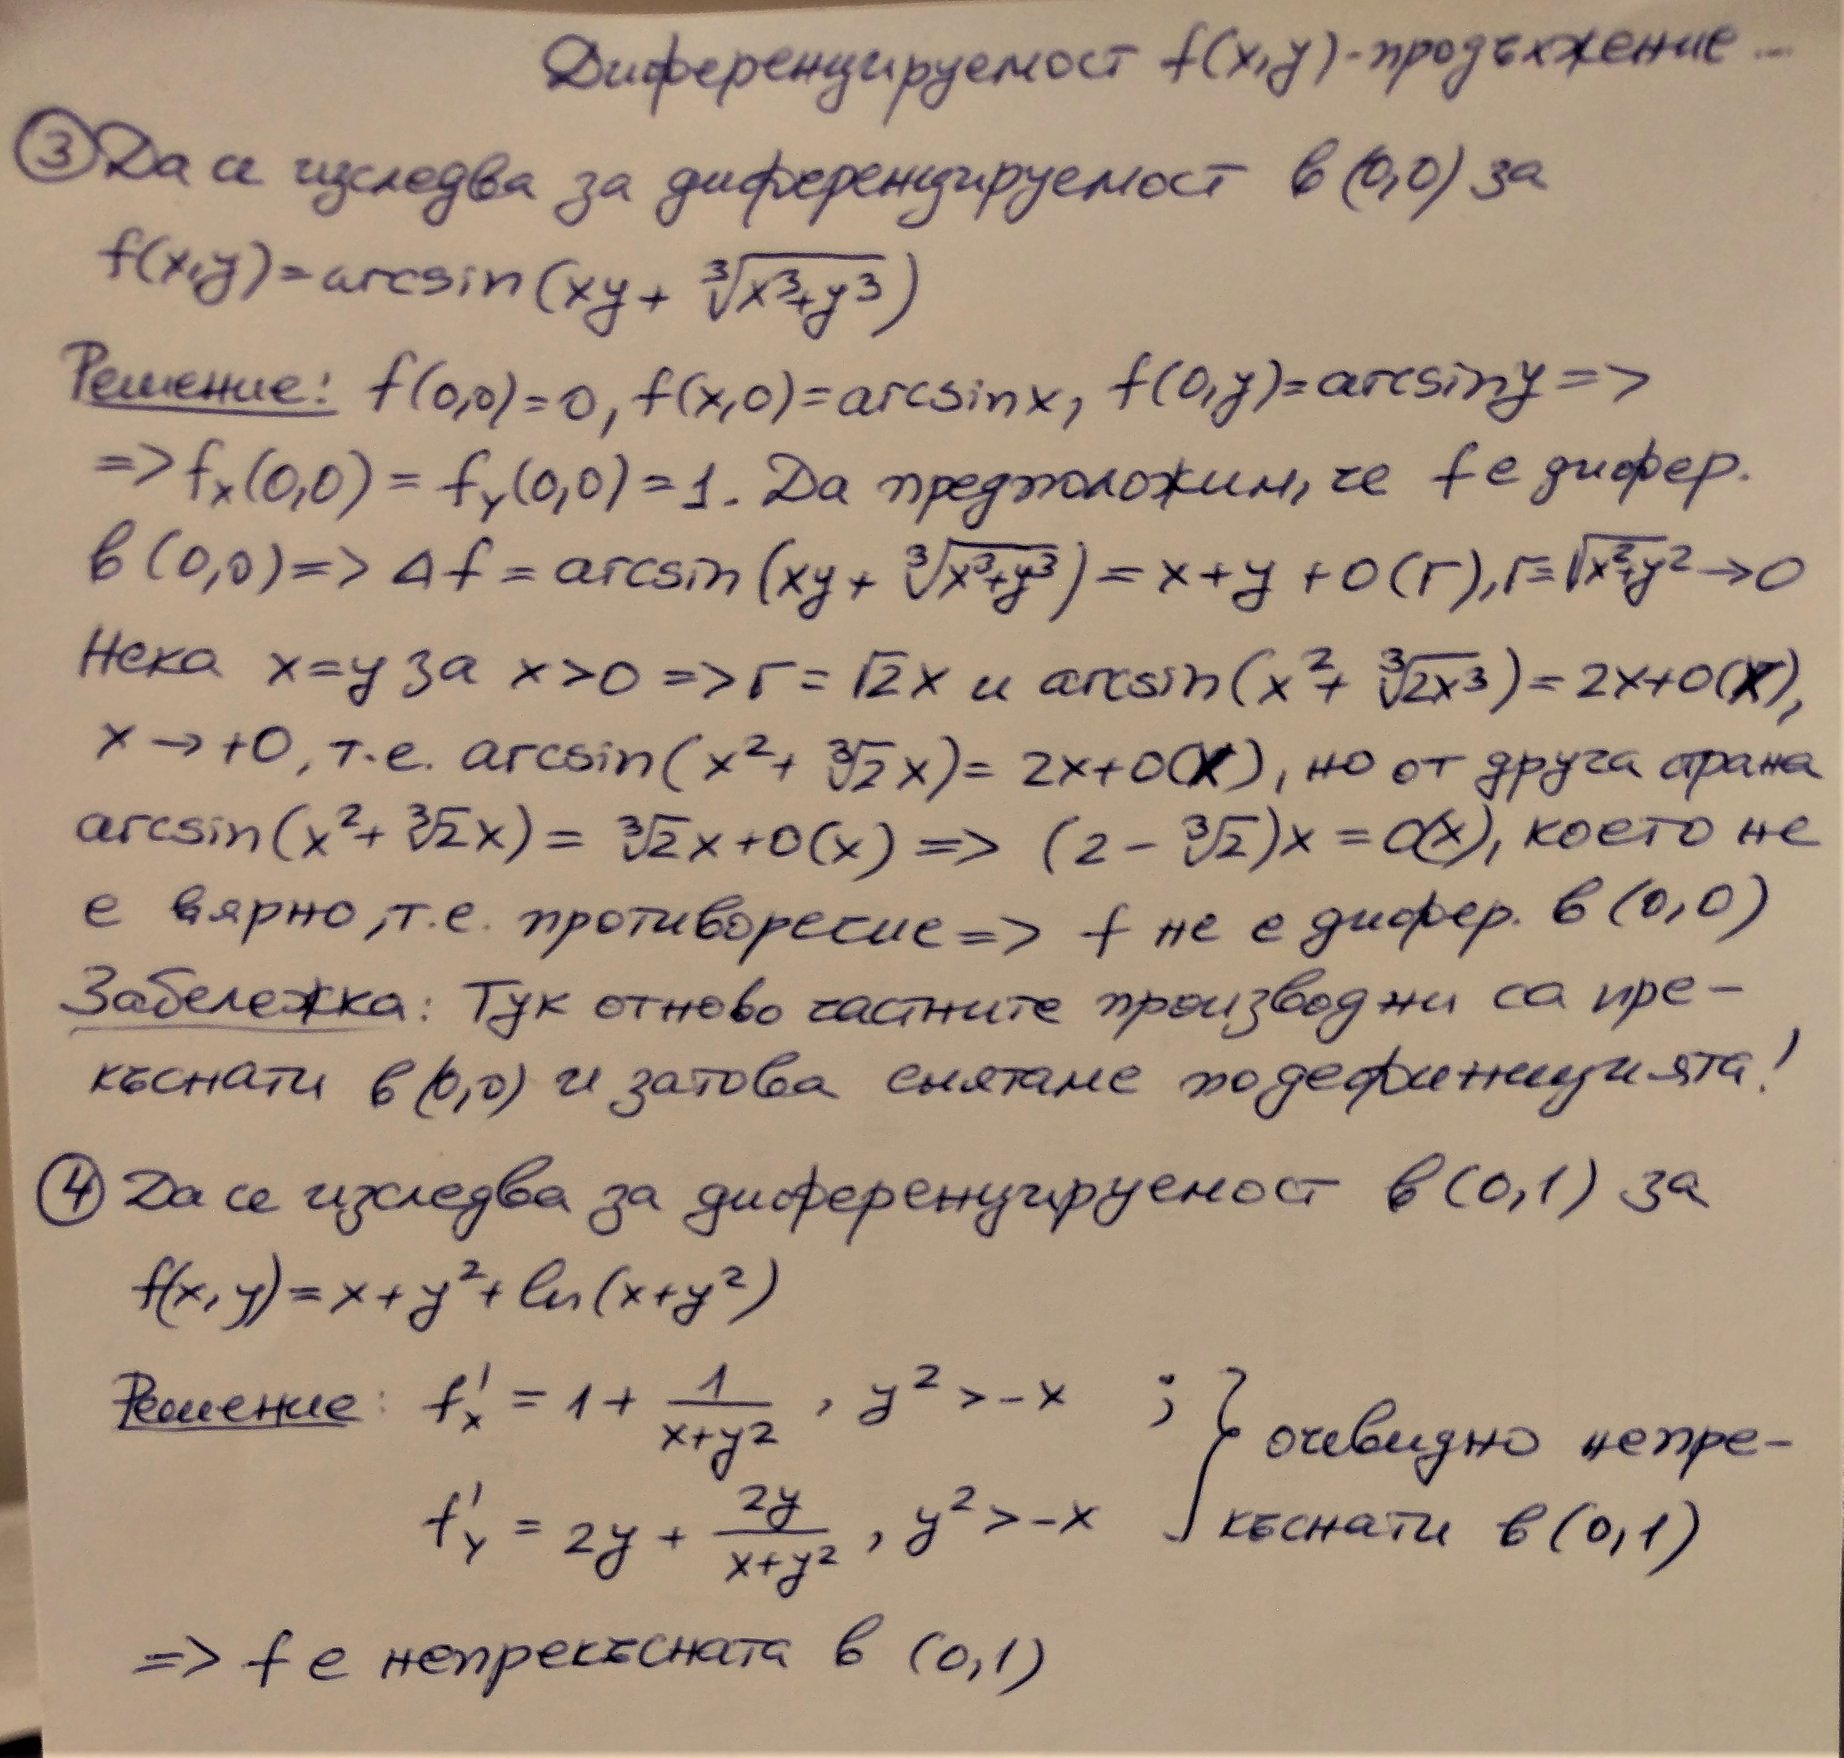 Диференцируемост f(x,y) - продължение ...
③ Да се изследва за диференцируемост в (0,0) за
f(x,y) = arcsin(xy + ∛(x³+y³))
Решение: f(0,0)=0, f(x,0)=arcsinx, f(0,y)=arcsiny =>
=> fx(0,0) = fy(0,0) = 1. Да предположим, че f е дифер.
в (0,0) => Δf = arcsin(xy + ∛(x³+y³)) = x+y+o(r), r=√(x²+y²) → 0
Нека x=y за x>0 => r = √2x и arcsin(x² + ∛(2x³)) = 2x+o(x),
x → +0, т.е. arcsin(x² + ∛2x) = 2x+o(x), но от друга страна
arcsin(x² + ∛2x) = ∛2x + o(x) => (2 - ∛2)x = o(x), което не
е вярно, т.е. противоречие => f не е дифер. в (0,0)
Забележка: Тук отново частните производни са пре-
къснати в (0,0) и затова смятаме по дефиницията!
④ Да се изследва за диференцируемост в (0,1) за
f(x,y) = x+y²+ln(x+y²)
Решение: f'x = 1 + 1/(x+y²), y² > -x ; } очевидно непре-
f'y = 2y + 2y/(x+y²), y² > -x } къснати в (0,1)
=> f е непрекъсната в (0,1)